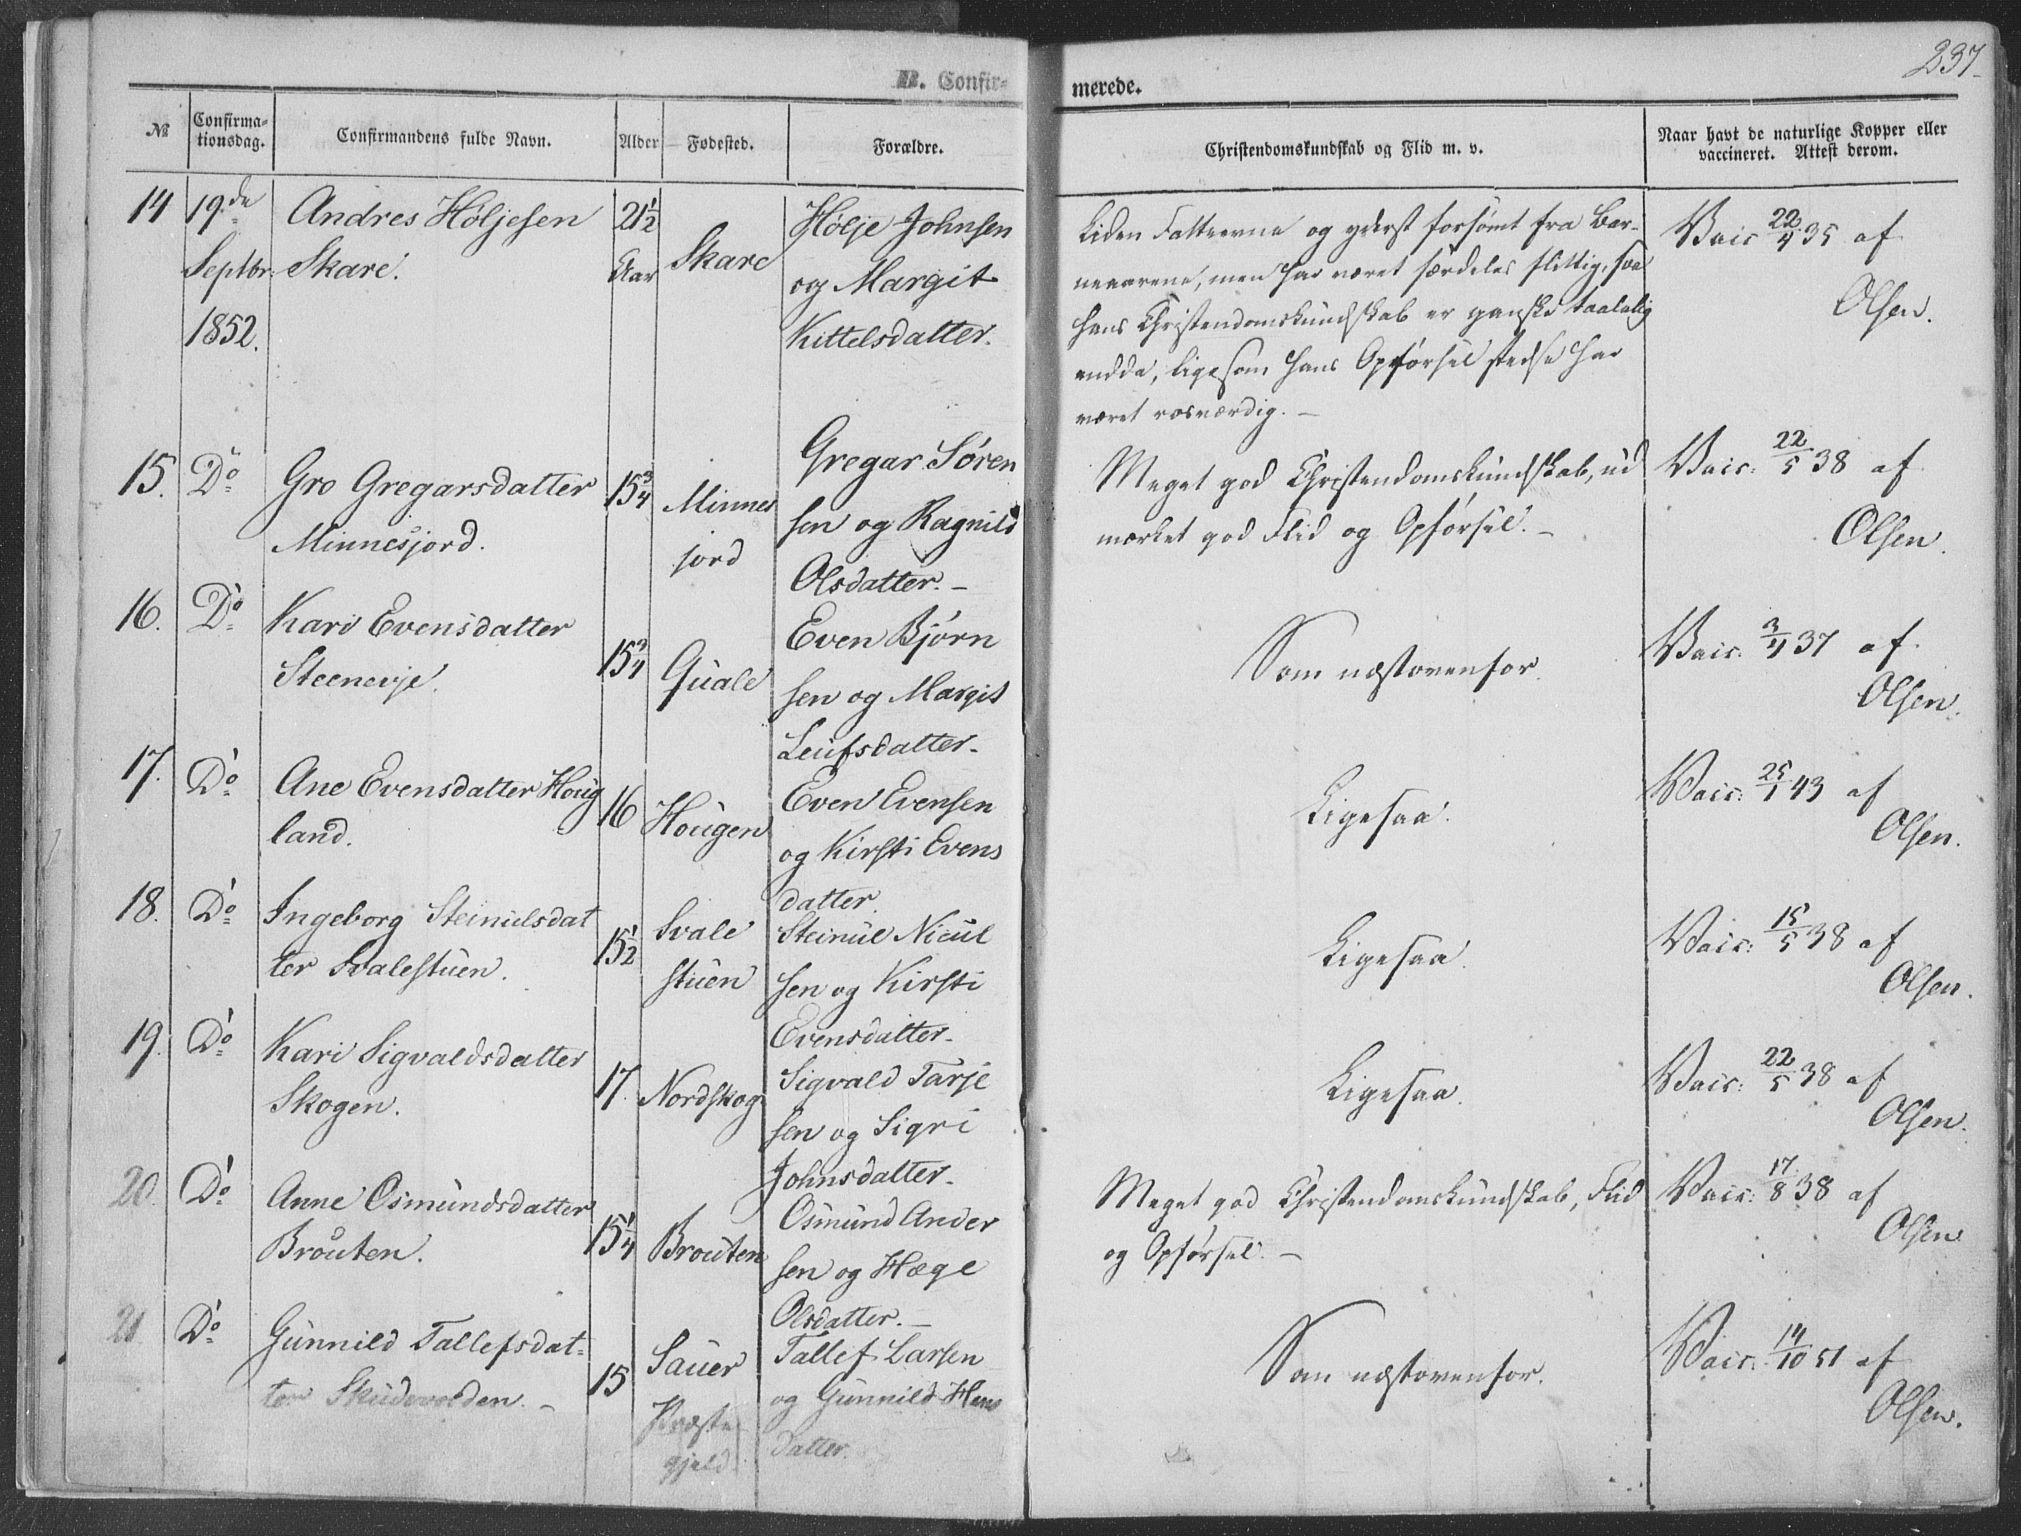 237
B. Confir-
merede.
№
Confirma-
tionsdag.
Confirmandens fulde Navn.
Alder
Fødested.
Forældre.
Christendomskundskab og Flid m. v.
Naar havt de naturlige Kopper eller
vaccineret. Attest derom.
14
19de
Septbr.
1852.
Andres Höljesen
Skare.
21½
Aar
Skare
Hölje Johnsen
og Margit
Kittelsdatter.
Liden Fatteevne og yderst forsömt fra Bar-
neaarene, men har været særdeles flittig, saa
hans Christendomskundskab er ganske taalelig
endda, ligesom hans Opførsel stedse har
været rosværdig. –
Vacc 22/4 35 af
Olsen.
15.
Do
Gro Gregarsdatter
Minnesjord.
15¾
Minnes
jord
Gregar Sören
sen og Ragnild
Olsdatter. –
Meget god Christendomskundskab, ud
mærket god Flid og Opførsel. –
Vacc: 22/5 38 af
Olsen.
16.
Do
Kari Evensdatter
Steenevje.
15¾
Quale
Even Bjørn
sen og Margit
Leufsdatter.
Som næstovenfor.
Vacc. 3/4 37 af
Olsen.
17.
Do
Ane Evensdatter Houg
land.
16
Hougen
Even Evensen
og Kirsti Evens
datter
Ligesaa.
Vacc: 25/1 43 af
Olsen.
18.
Do
Ingeborg Steinulsdat
ter Svalestuen.
15½
Svale
stuen
Steinul Nicul
sen og Kirsti
Evensdatter.
Ligesaa.
Vacc: 15/5 38 af
Olsen.
19.
Do
Kari Sigvaldsdatter
Skogen.
17.
Nordskog
Sigvald Tarje
sen og Sigri
Johnsdatter.
Ligesaa.
Vacc: 22/5 38 af
Olsen.
20.
Do
Anne Osmundsdatter
Brouten.
15¼
Brouten
Osmund Ander
sen og Hæge
Olsdatter. –
Meget god Christendomskundskab, Flid
og Opførsel. –
Vacc: 17/8 38 af
Olsen
21.
Do
Gunnild Tallefsdat-
ter Skudevolden. –
15
Sauer
Præste
gjeld
Tallef Larsen
og Gunnild Hans
datter.
Som næstovenfor.
Vacc. 14/10 51 af
Olsen.